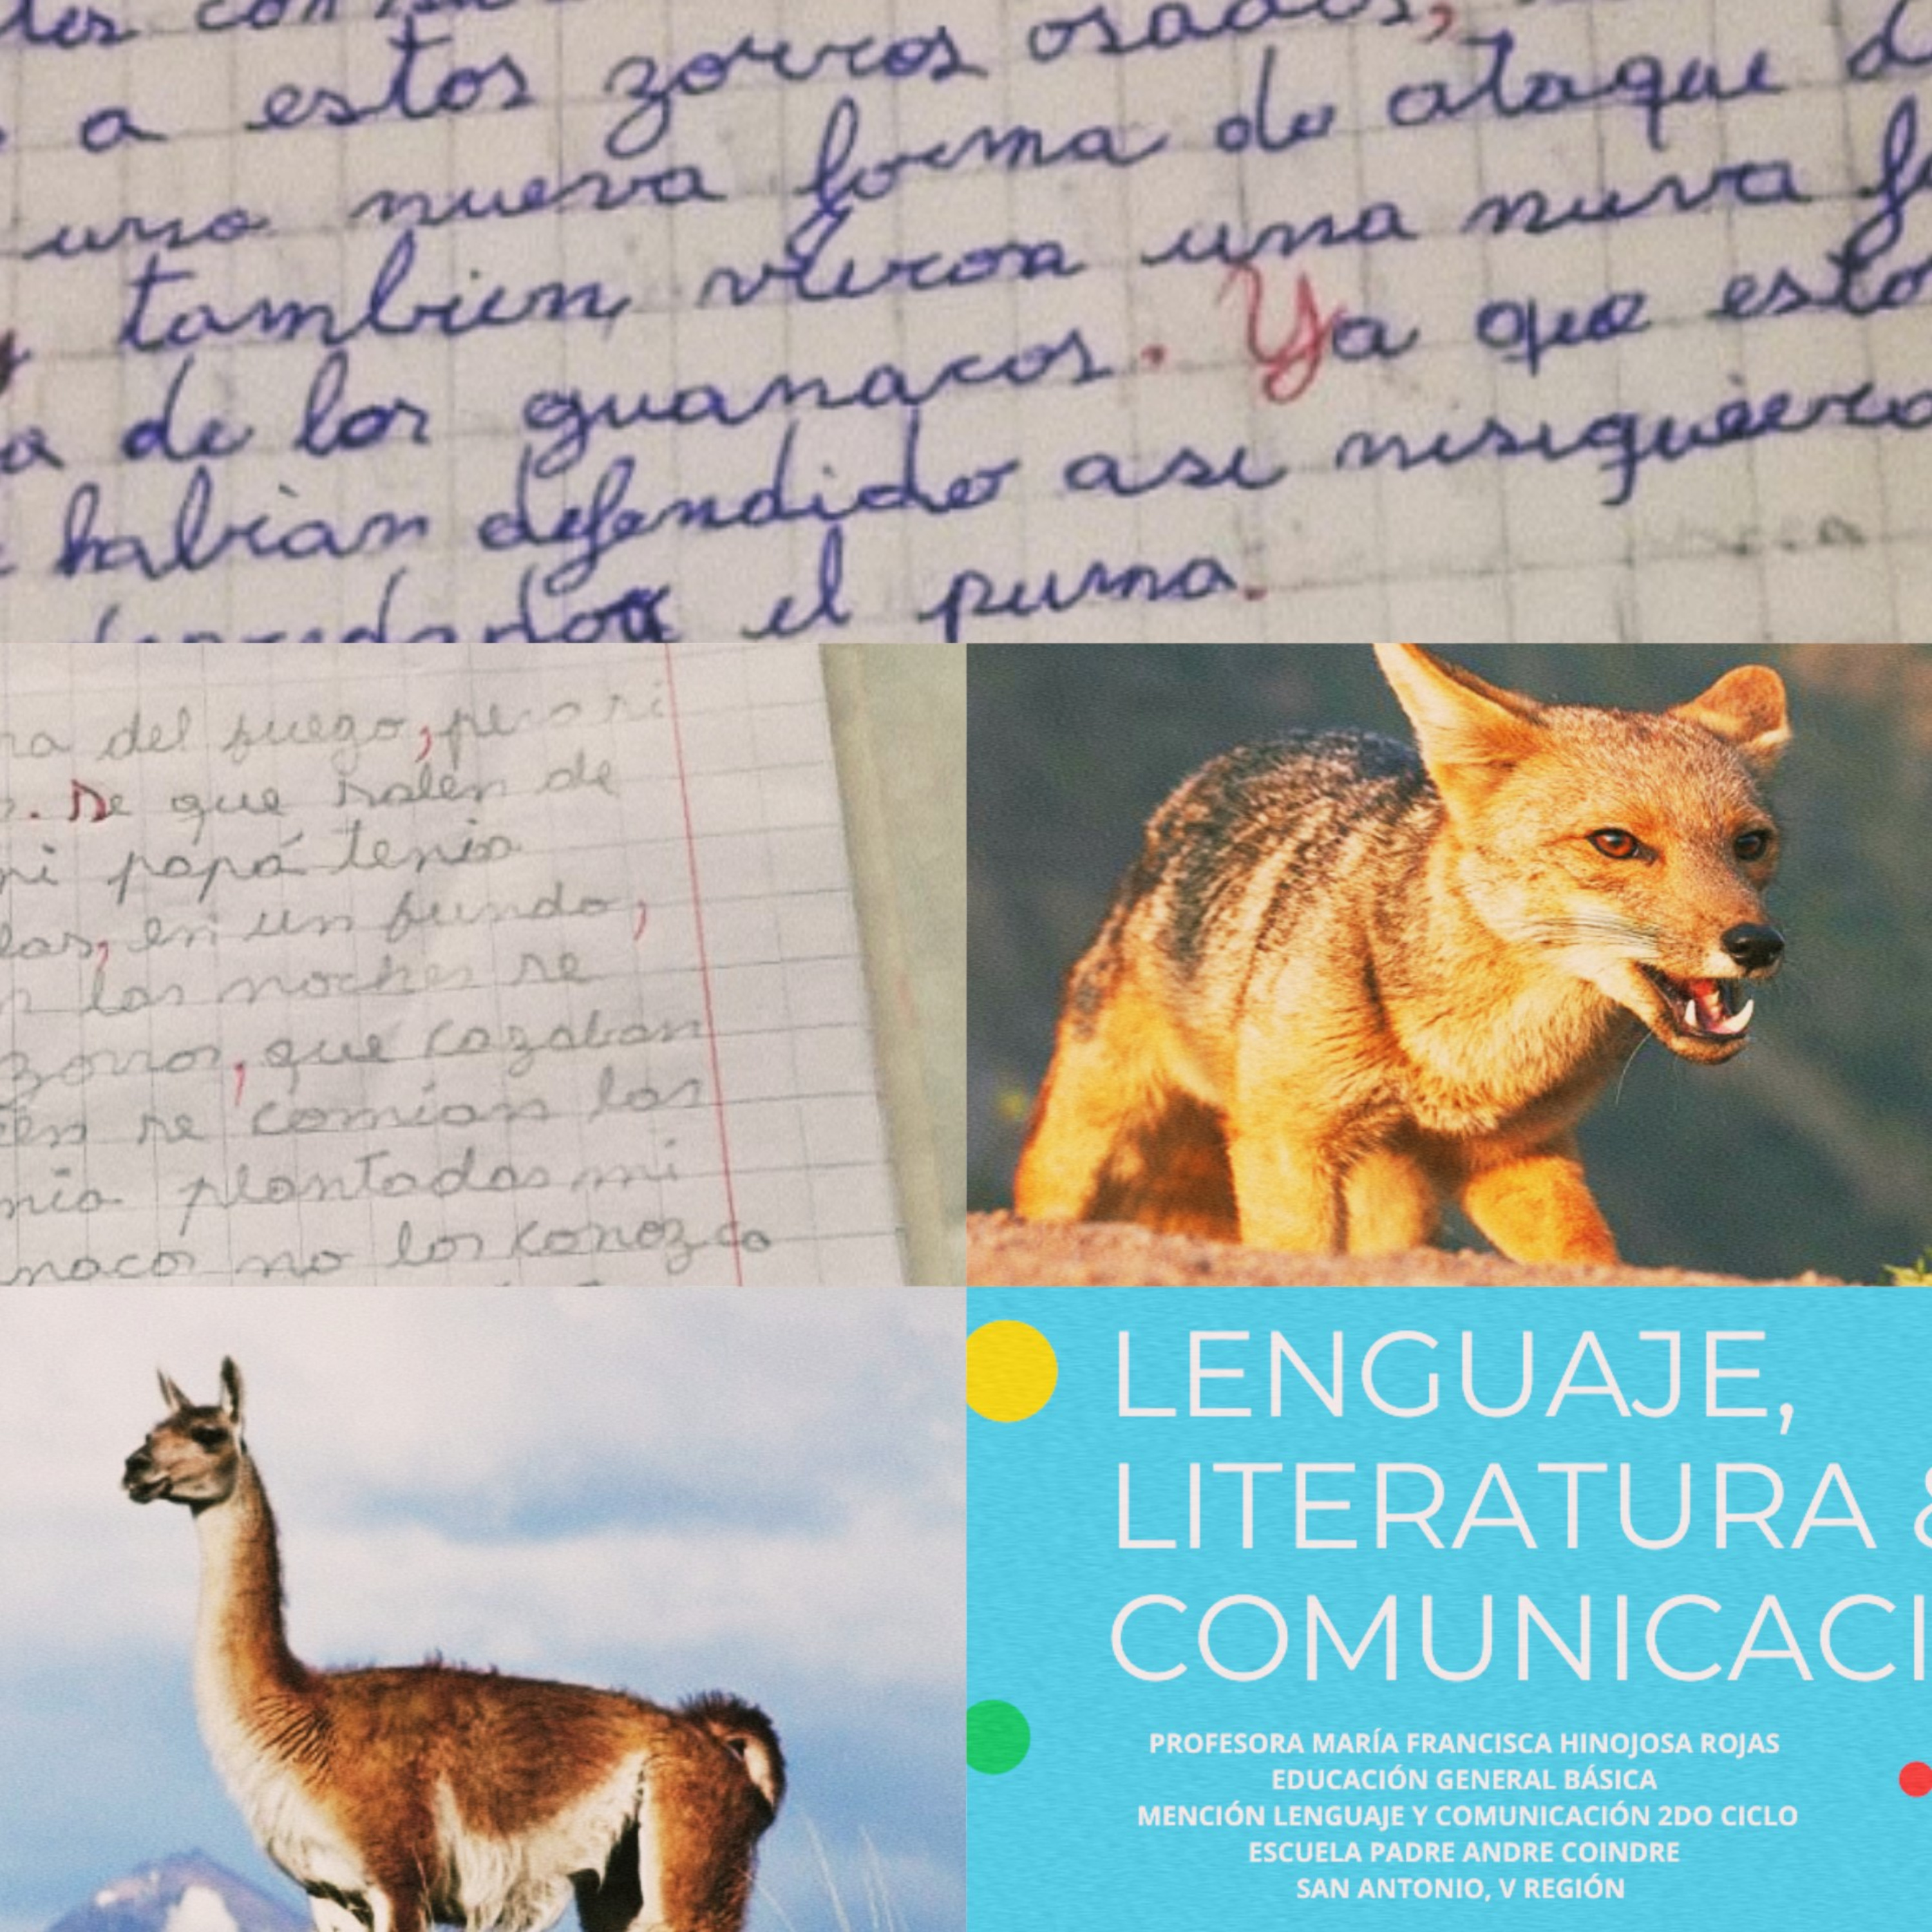 a estos zorros osados,
una nueva forma de ataque
tambien vieron una nueva
de los guanacos. Ya que esto
habían defendido asi nisiquiera
el puma.
del fuego, pero si
. De que salen de
mi papá tenia
en un fundo,
las noches se
zorros, que cazaban
se comían las
plantadas mi
no los conozco
LENGUAJE,
LITERATURA &
COMUNICACI
PROFESORA MARÍA FRANCISCA HINOJOSA ROJAS
EDUCACIÓN GENERAL BÁSICA
MENCIÓN LENGUAJE Y COMUNICACIÓN 2DO CICLO
ESCUELA PADRE ANDRE COINDRE
SAN ANTONIO, V REGIÓN